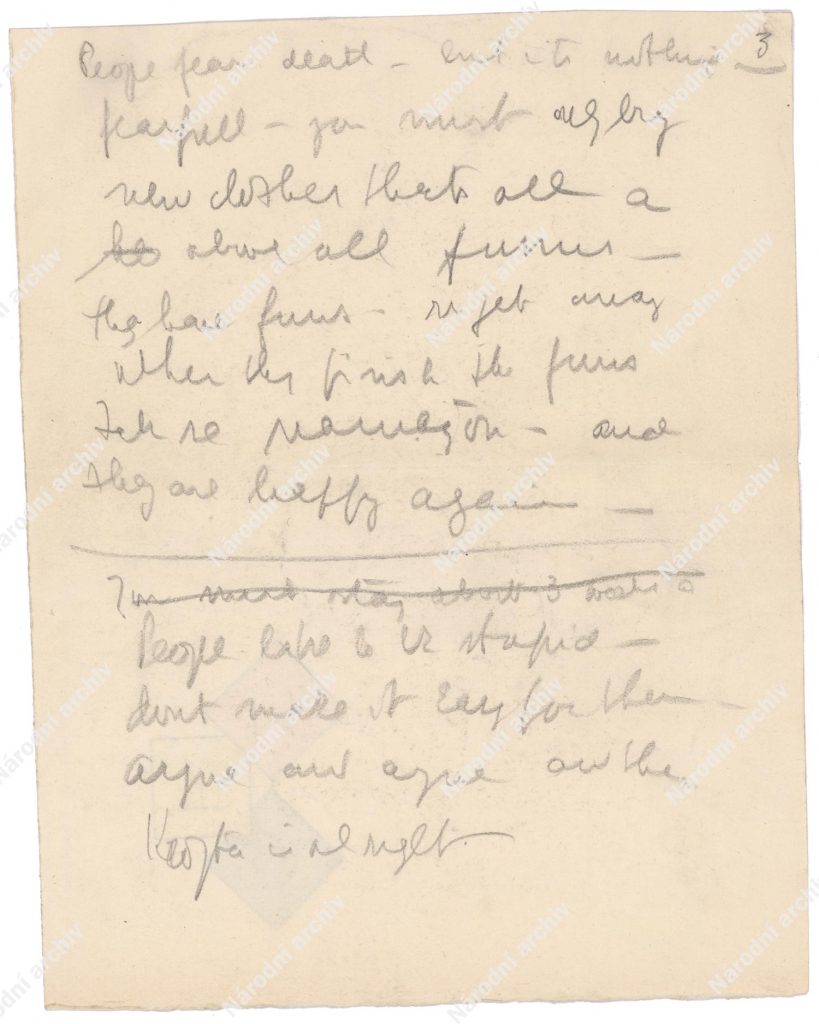 3
People fear death – but its nothing
fearfull – you must only buy
new clothes thats all a
above all furns –
they have furns – right away
When they finish the furns
– and
they are heppy again –
You must stay about 3 weeks
People like to be stupid –
dont make it easy for them –
argue and argue and the
is al right